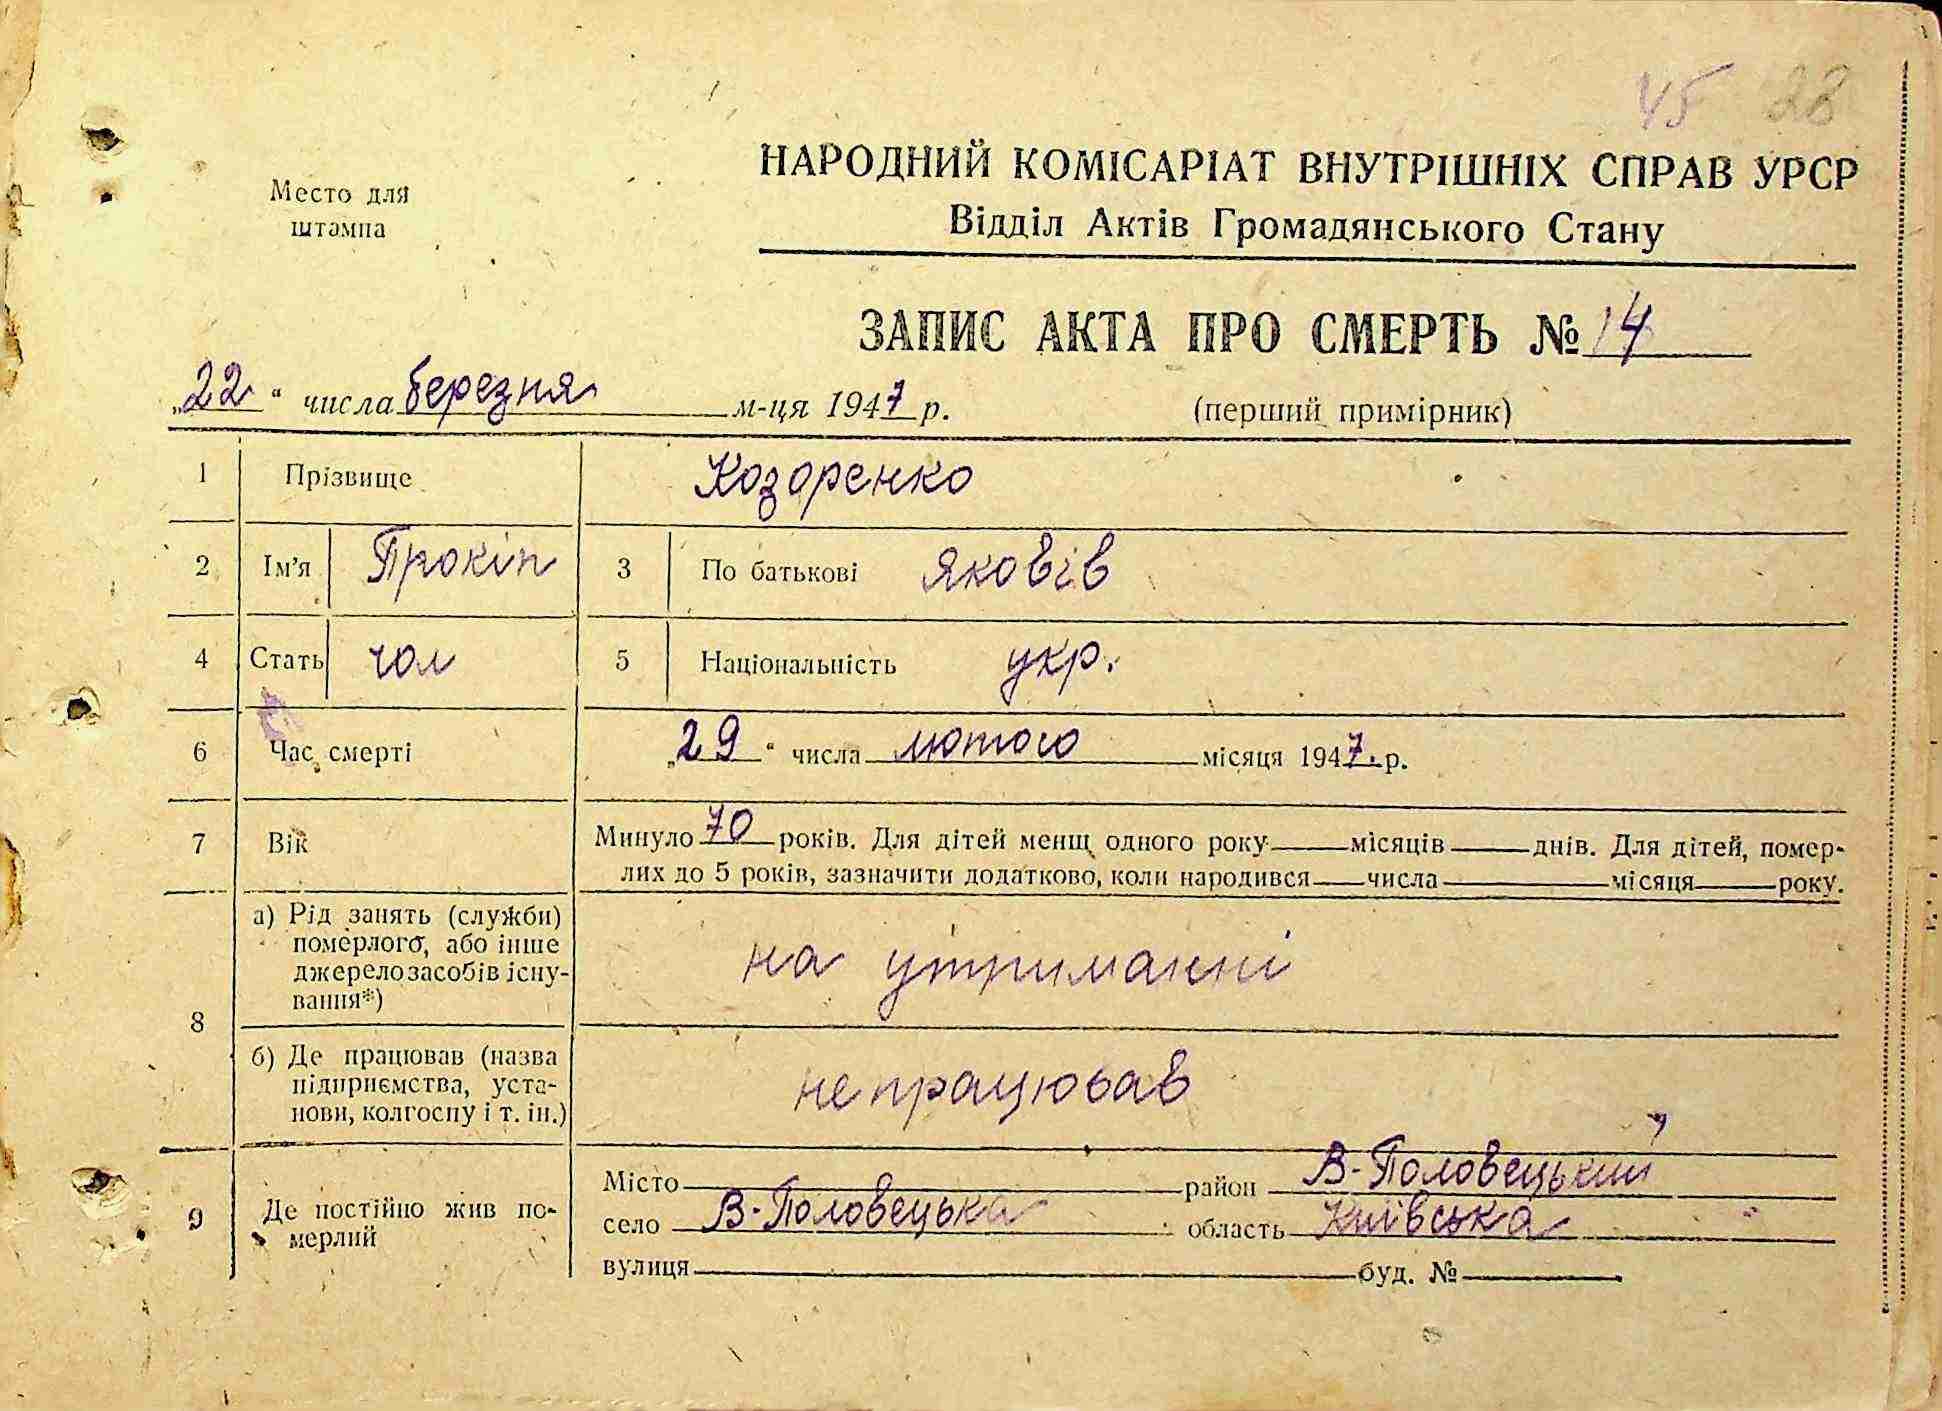 45 23
Место для
штампа
НАРОДНИЙ КОМІСАРІАТ ВНУТРІШНІХ СПРАВ УРСР
Відділ Актів Громадянського Стану
ЗАПИС АКТА ПРО СМЕРТЬ № 14
„22“ числа березня м-ця 1947 р. (перший примірник)
1 Прізвище Козоренко
2 Ім'я Прокіп 3 По батькові Яковів
4 Стать чол 5 Національність укр.
6 Час смерті „29“ числа лютого місяця 1947. р.
7 Вік Минуло 70 років. Для дітей менш одного року — місяців — днів. Для дітей, помер-
лих до 5 років, зазначити додатково, коли народився — числа — місяця — року.
8 а) Рід занять (служби)
померлого, або інше
джерело засобів існу-
вання*)
на утриманні
б) Де працював (назва
підприємства, уста-
нови, колгоспу і т. ін.)
не працював
9 Де постійно жив по-
мерлий
Місто район В-Половецький
село В-Половецька область Київська
вулиця буд. №